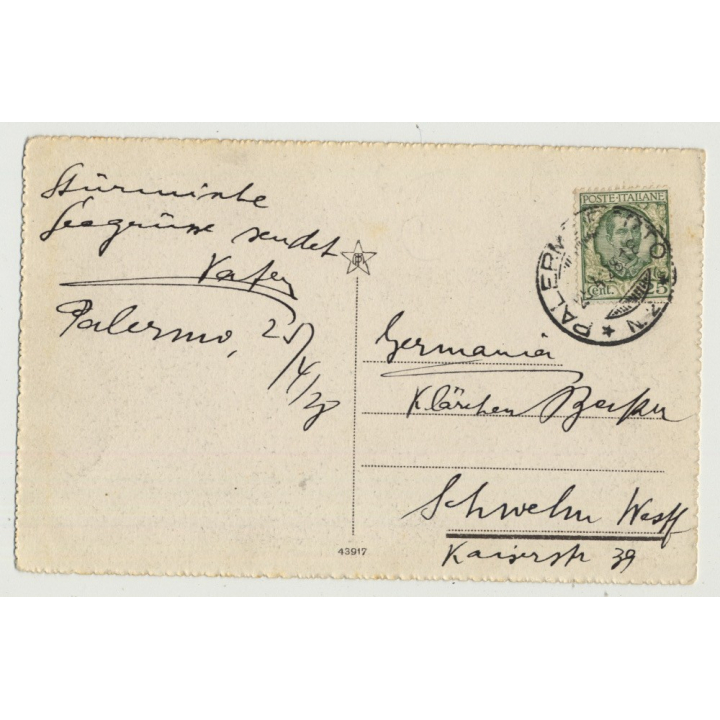 Stürmische
Seegrüsse sendet
Vater
Palermo, 25/4/28
POSTE·ITALIANE
Cent. 25
PALERMO
Germania
Klärchen
Schwelm Westf
Kaiserstr 39
43917